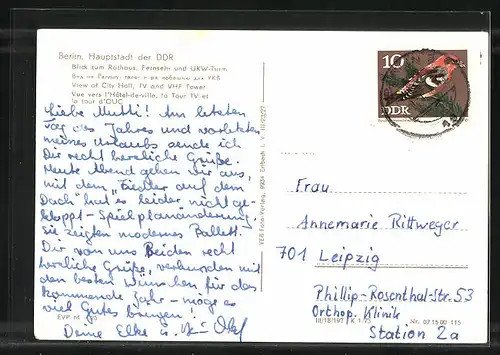 Berlin, Hauptstadt der DDR
Blick zum Rathaus, Fernseh- und UKW-Turm
View of City Hall, TV and VHF Tower
Vue vers l'Hôtel-de-ville, la Tour TV et
la tour d'OUC
Liebe Mutti! Am letzten
Tag des Jahres und vorletzten
meines Urlaubs sende ich
Dir recht herzliche Grüße.
Heute Abend gehen wir aus,
mit dem "Fiedler auf dem
Dach" hat es leider nicht ge-
kloppt - Spielplanänderung,
sie zeigten modernes Ballett.
Dir von uns Beiden recht
herzliche Grüße, verbunden mit
den besten Wünschen für das
kommende Jahr - möge es
viel Gutes bringen!
Deine Elke u.
EVP M
VEB Foto-Verlag, 9934 Erlbach i. V.
10
DDR
Frau
Annemarie Rittweger
701 Leipzig
Phillip-Rosenthal-Str. 53
Orthop. Klinik
Station 2a
III/18/197 K 1/73
Nr. 07 15 00 115